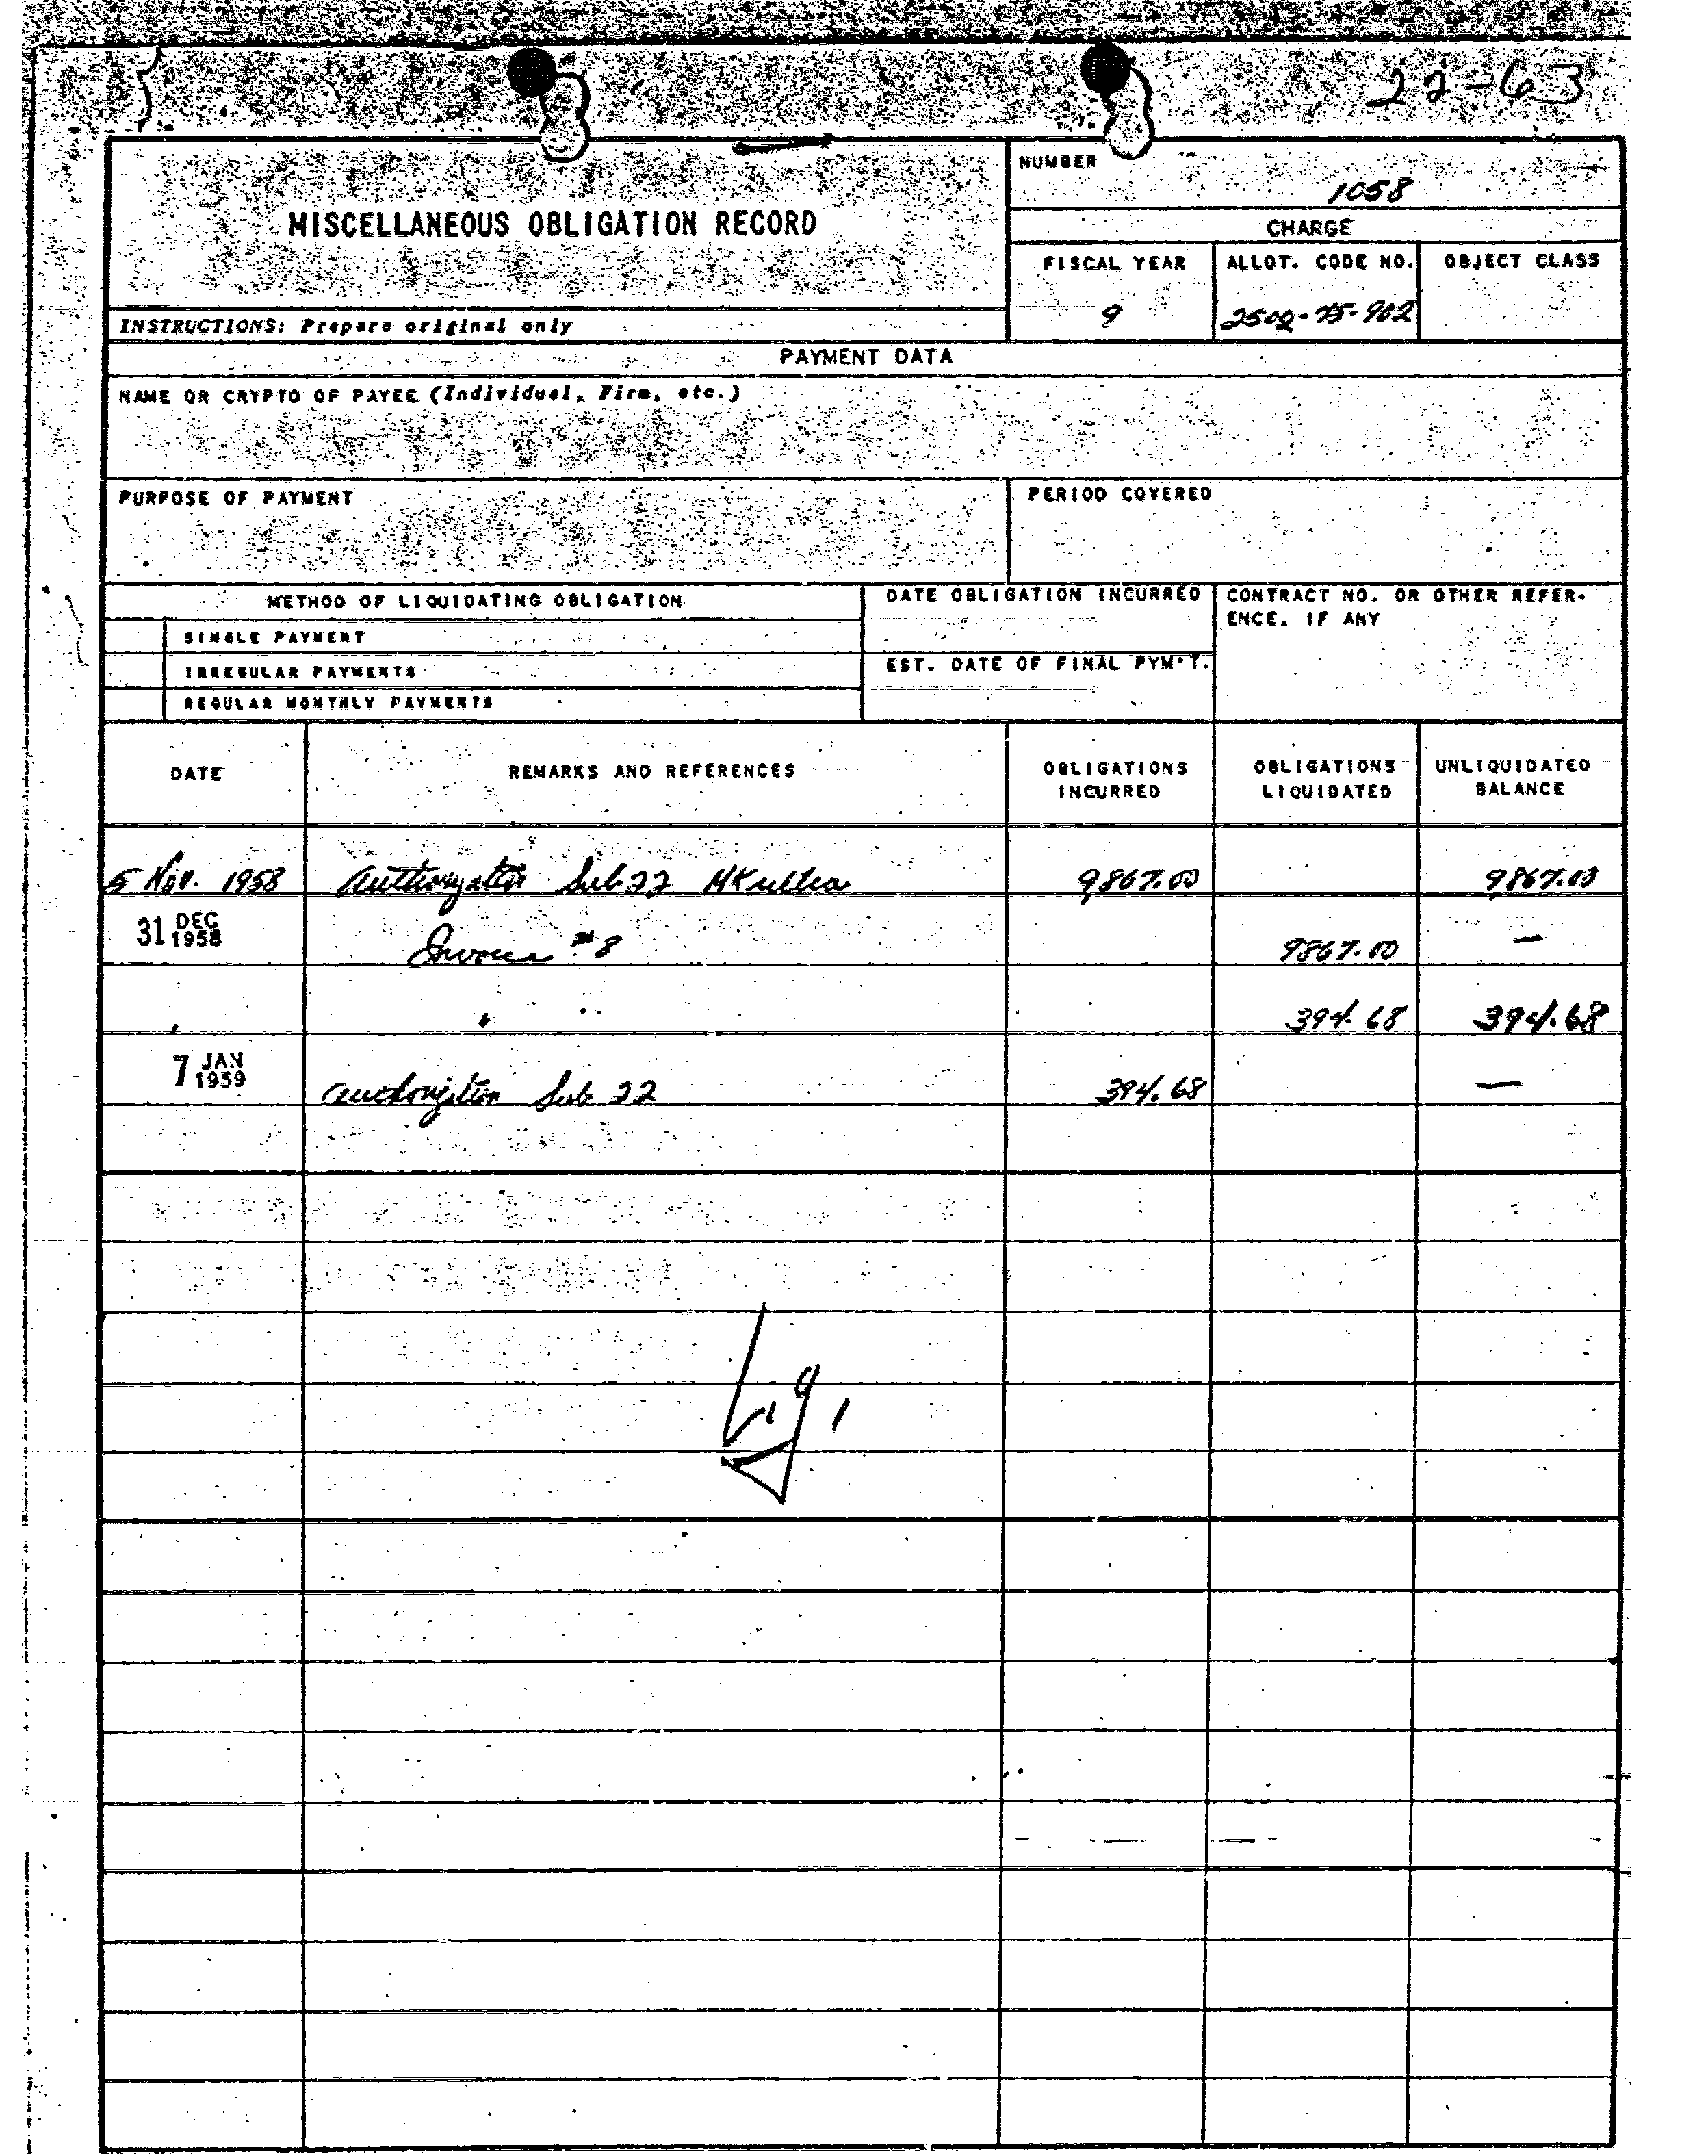 22-63
NUMBER
1058
MISCELLANEOUS OBLIGATION RECORD
CHARGE
FISCAL YEAR ALLOT. CODE NO. OBJECT CLASS
9 2502-75-902
INSTRUCTIONS: Prepare original only
PAYMENT DATA
NAME OR CRYPTO OF PAYEE (Individual, Firm, etc.)
PURPOSE OF PAYMENT PERIOD COVERED
METHOD OF LIQUIDATING OBLIGATION
SINGLE PAYMENT
IRREGULAR PAYMENTS
REGULAR MONTHLY PAYMENTS
DATE OBLIGATION INCURRED
EST. DATE OF FINAL PYM'T.
CONTRACT NO. OR OTHER REFER-
ENCE. IF ANY
DATE REMARKS AND REFERENCES OBLIGATIONS INCURRED OBLIGATIONS LIQUIDATED UNLIQUIDATED BALANCE
5 Nov. 1958 Authorization Sub 22 MKultra 9,867.00 9,867.00
31 DEC 1958 Invoice #8 9867.00 —
" " 394.68 394.68
7 JAN 1959 Authorization Sub 22 394.68 —